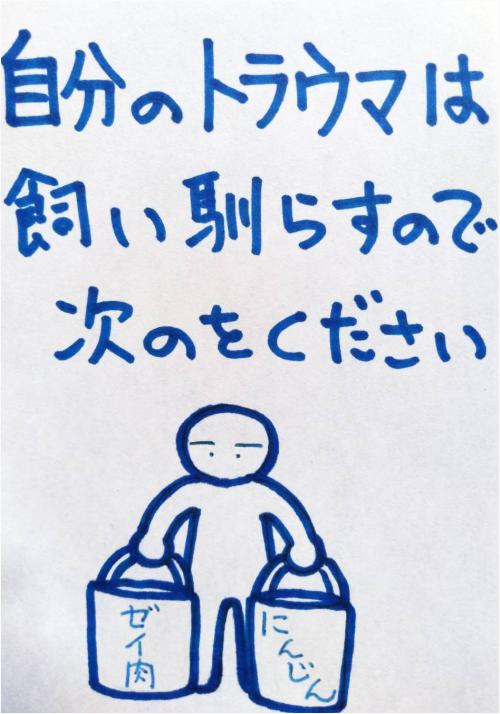 自分のトラウマは
飼い馴らすので
次のをください
ゼイ肉
にんじん